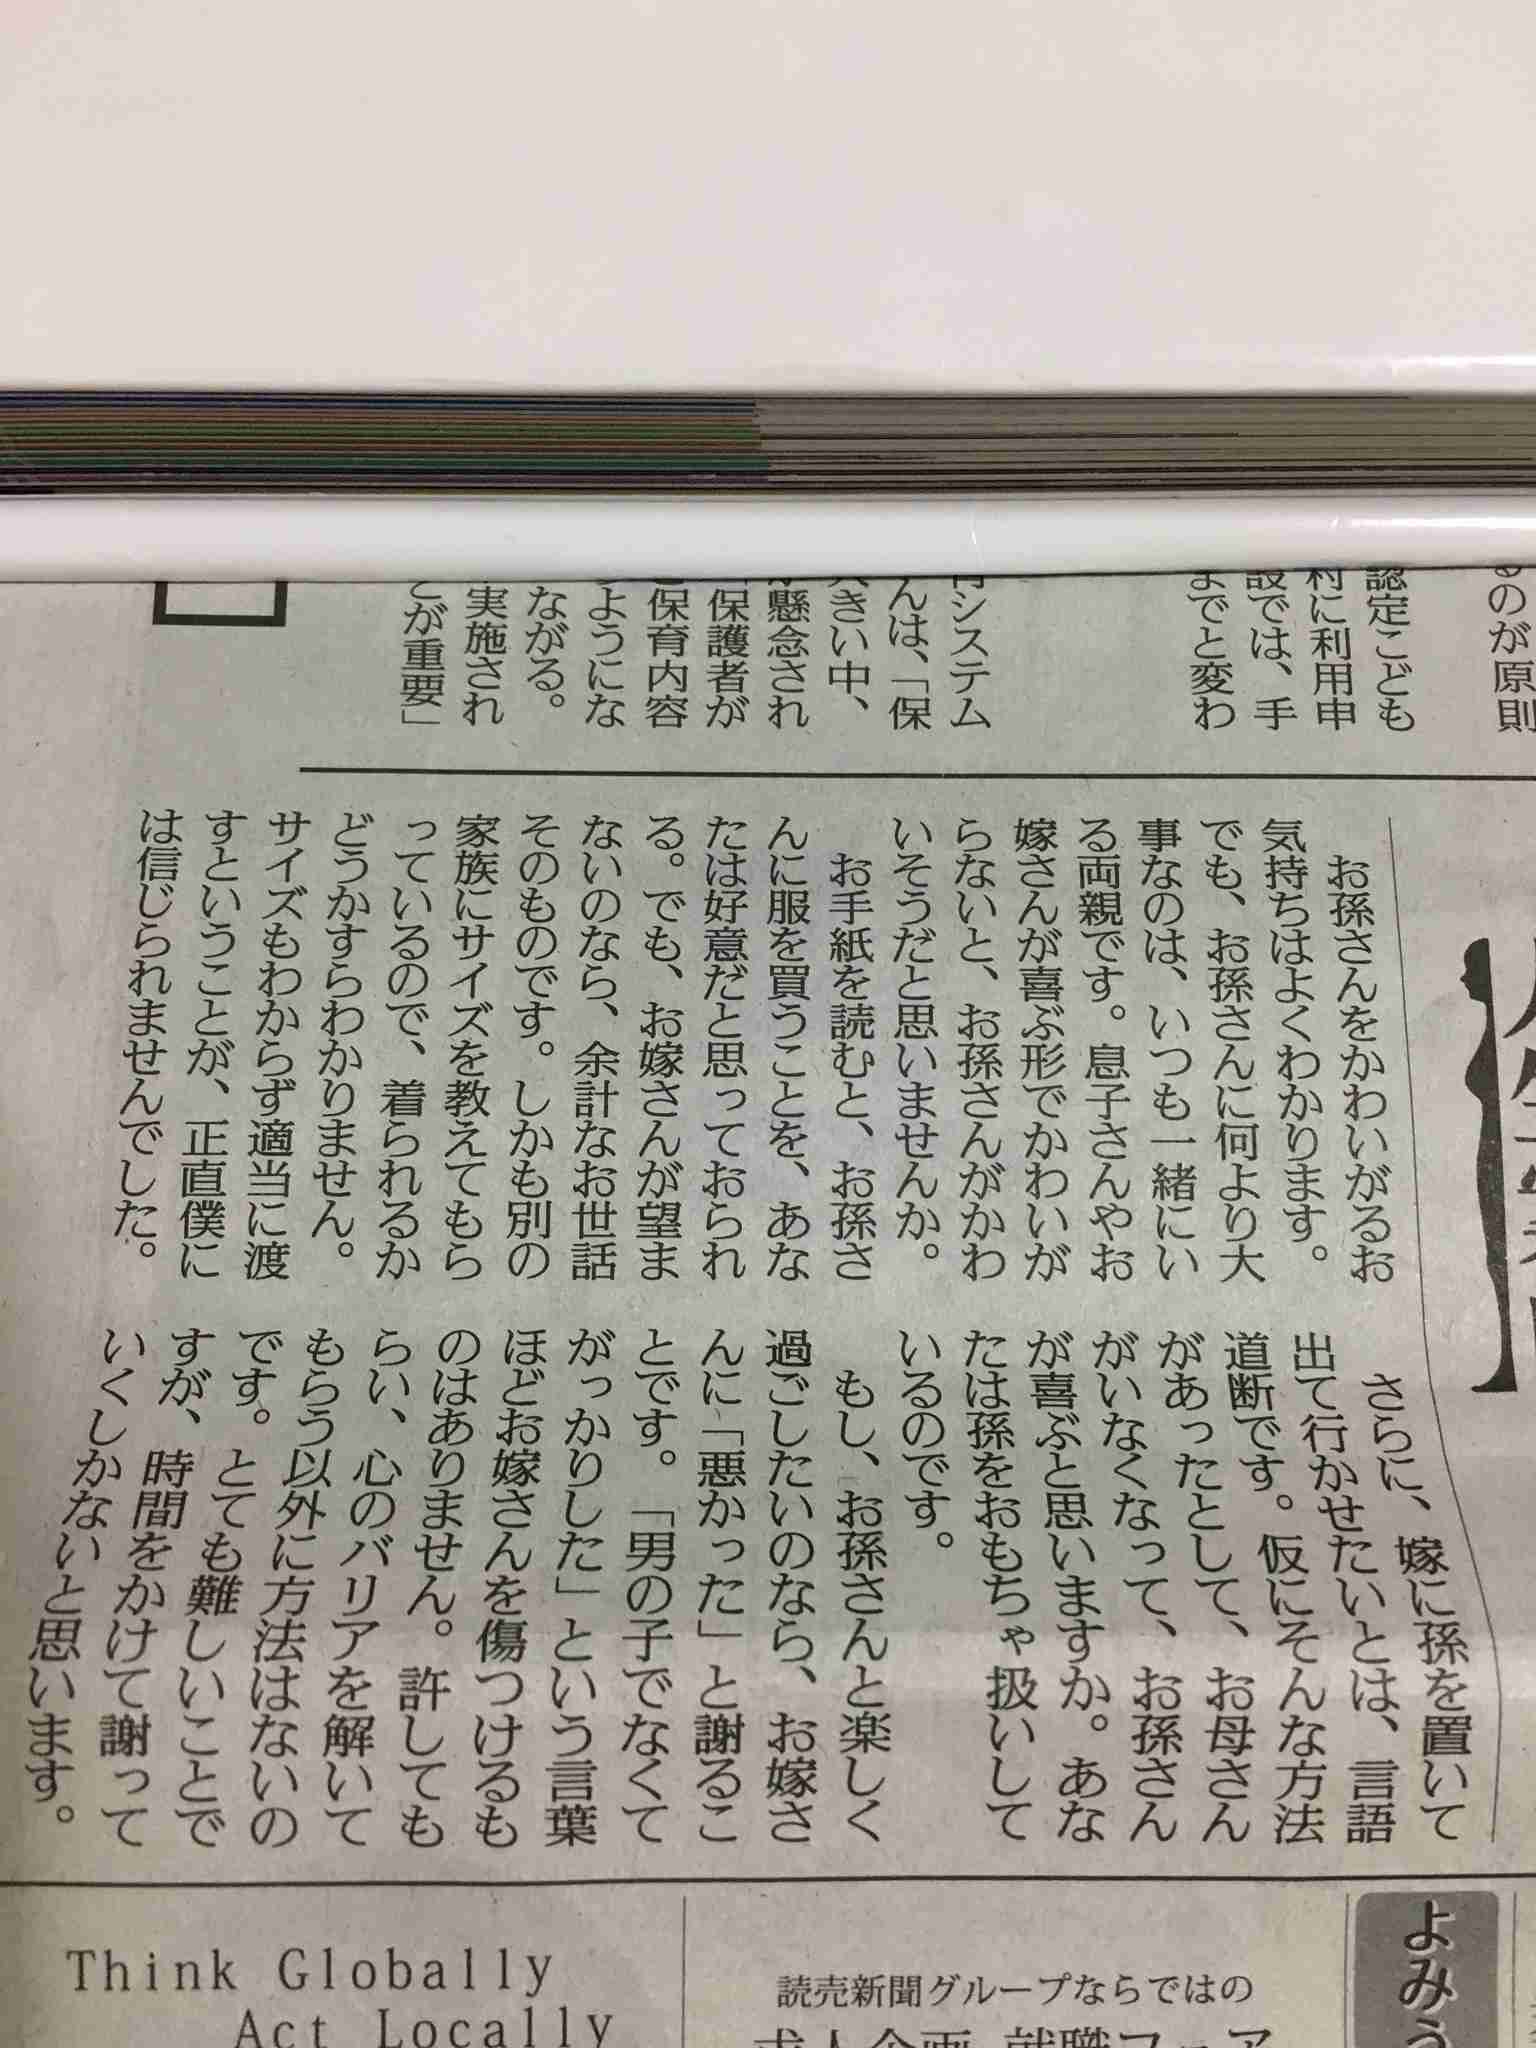 るのが原則
認定こども
利に利用申
設では、手
までと変わ
育システム
んは、「保
大きい中、
が懸念され
「保護者が
保育内容
ようにな
ながる。
実施され
とが重要」
お孫さんをかわいがるお
気持ちはよくわかります。
でも、お孫さんに何より大
事なのは、いつも一緒にい
る両親です。息子さんやお
嫁さんが喜ぶ形でかわいが
らないと、お孫さんがかわ
いそうだと思いませんか。
お手紙を読むと、お孫さ
んに服を買うことを、あな
たは好意だと思っておられ
る。でも、お嫁さんが望ま
ないのなら、余計なお世話
そのものです。しかも別の
家族にサイズを教えてもら
っているので、着られるか
どうかすらわかりません。
サイズもわからず適当に渡
すということが、正直僕に
は信じられませんでした。
さらに、嫁に孫を置いて
出て行かせたいとは、言語
道断です。仮にそんな方法
があったとして、お母さん
がいなくなって、お孫さん
が喜ぶと思いますか。あな
たは孫をおもちゃ扱いして
いるのです。
もし、お孫さんと楽しく
過ごしたいのなら、お嫁さ
んに「悪かった」と謝るこ
とです。「男の子でなくて
がっかりした」という言葉
ほどお嫁さんを傷つけるも
のはありません。許しても
らい、心のバリアを解いて
もらう以外に方法はないの
です。とても難しいことで
すが、時間をかけて謝って
いくしかないと思います。
よみう
読売新聞グループならではの
求人企画 就職フェア
Think Globally
Act Locally